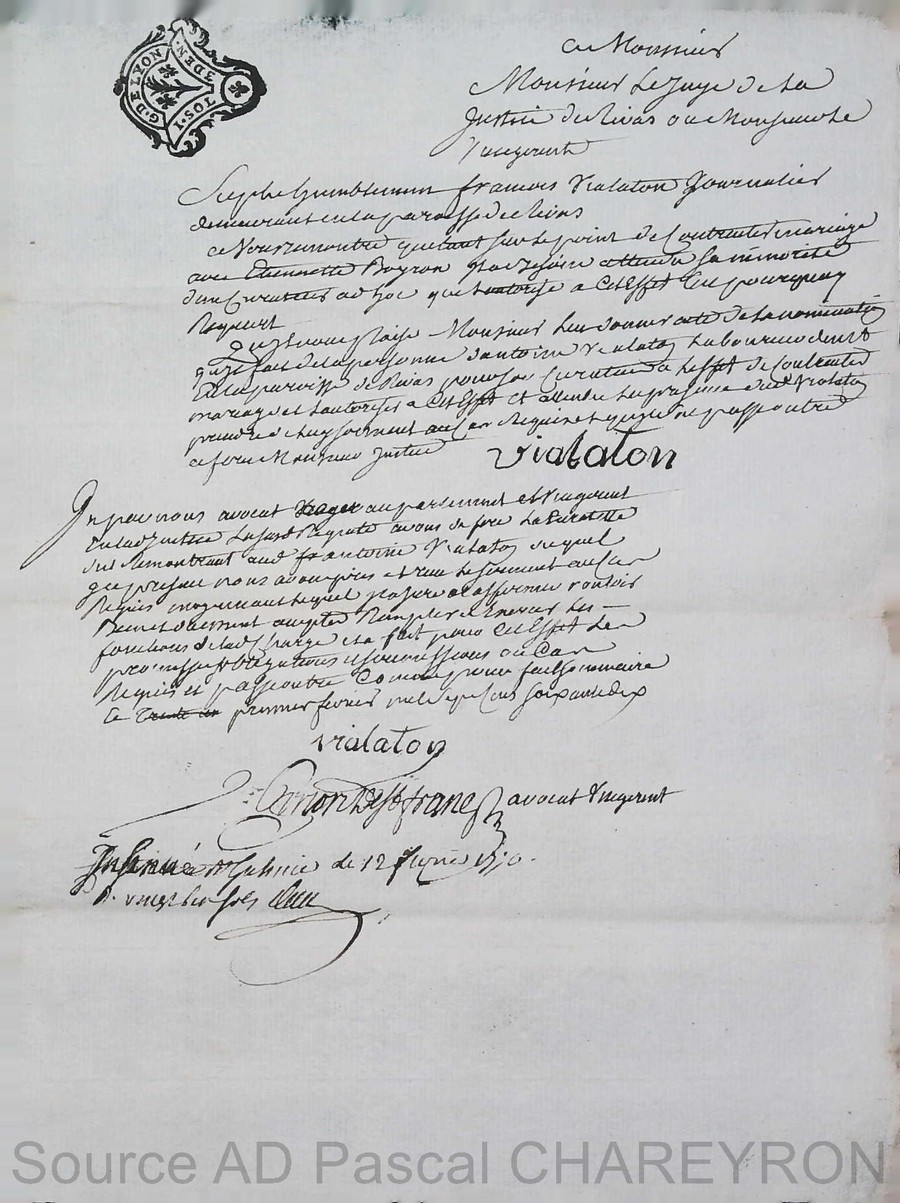 G. DE LYON
TOS. I
3 DEN.
a Monsieur
Monsieur Le Juge de La
Justice de Rivas ou Monsieur Le
Vicegerent
Suplie humblement francois Vialaton Journalier
demeurant en la paroisse de Rivas
et Vous remontre qu'etant sur le point de Contracter mariage
avec Etiennette Boyron il a besoin attendu sa minorité
d'un Curateur ad hoc qui Lautorise a Cet Effet C'est pourquoy
Requiert
Quil vous plaise Monsieur Luy donner acte de La nomination
quil fait de la personne d'antoine Vialaton Laboureur demt
En la paroisse de Rivas pour son Curateur a l'effet de Contracter
mariage et Lautoriser a Cet Effet et attendu La presence dud Vialaton
prendre de luy serment au Cas Requis et quil soit passé outre
et ferez Monsieur Justice
Vialaton
Vu par nous avocat au parlement et Vicegerent
En lad Justice La susd Requete avons deferé La Curatelle
du Remontrant aud antoine Vialaton duquel
icy present nous avons pris et recu le serment au Cas
Requis moyennant lequel il a juré et affermé vouloir
Bien et duement accepter Remplir et Exercer Les
fonctions de lad Charge et a fait pour Cet Effet Les
promesses obligations et soumissions au Cas
Requis et passé outre Comme pour fait sommaire
Ce premier fevrier mille sept Cens soixante dix
vialaton
avocat Vicegerent
Insinué a St Galmier le 12 fevrier 1770.
R. vingt six sols
Source AD Pascal CHAREYRON